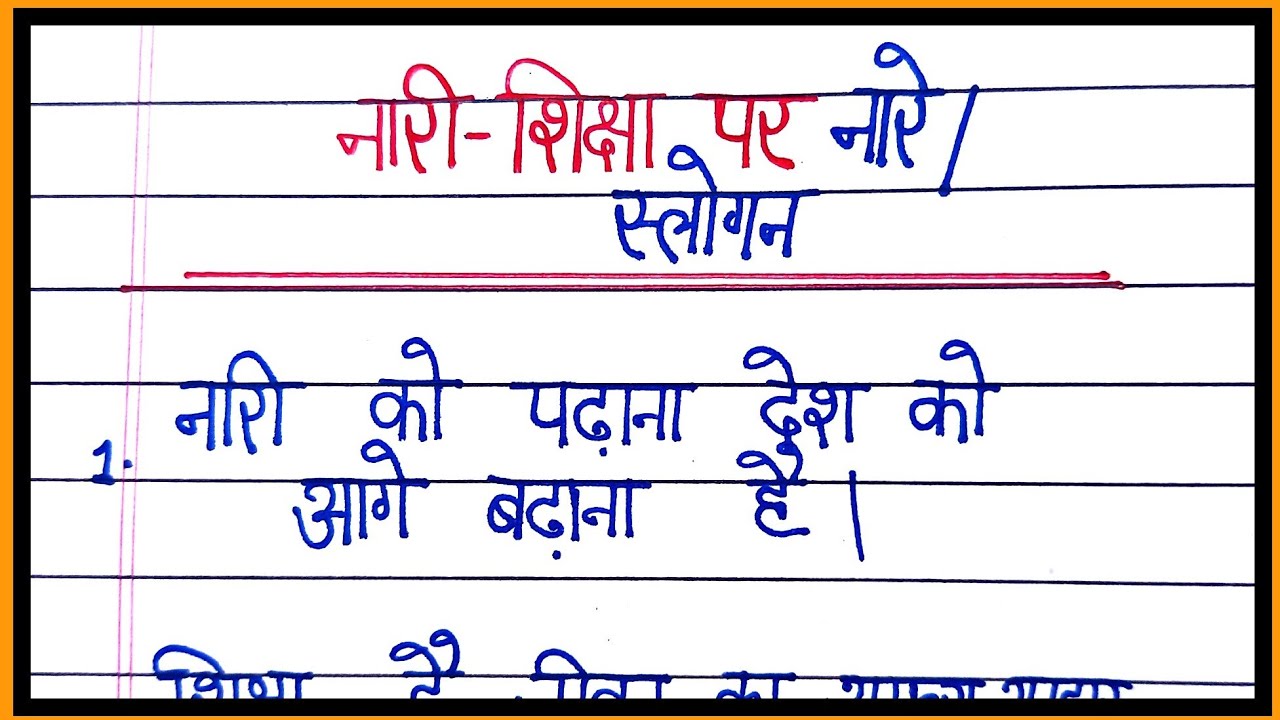 नारी-शिक्षा पर नारे/
स्लोगन
1. नारी को पढ़ाना देश को
आगे बढ़ाना है।
शिक्षा है